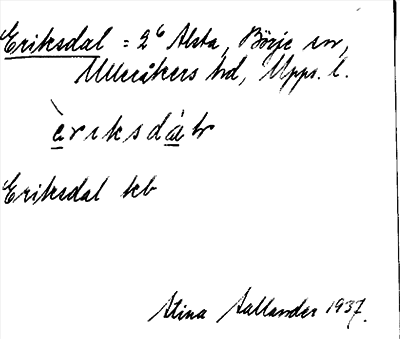 Eriksdal = 2⁶ Alsta, Börje sn,
Ulleråkers hd, Upps. l.
èriksdàlr
Eriksdal kb
Stina Sallander 1937.